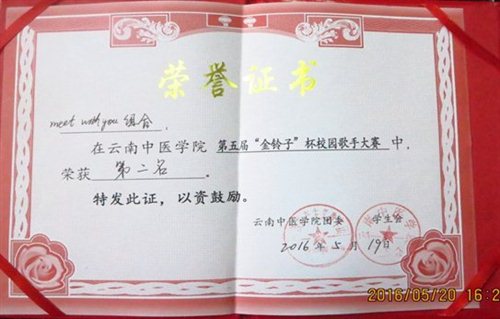 荣誉证书
meet with you 组合
在云南中医学院 第五届“金铃子”杯校园歌手大赛 中,
荣获 第二名 。
特发此证，以资鼓励。
云南中医学院团委 学生会
2016年5月19日
2016/05/20 16:2